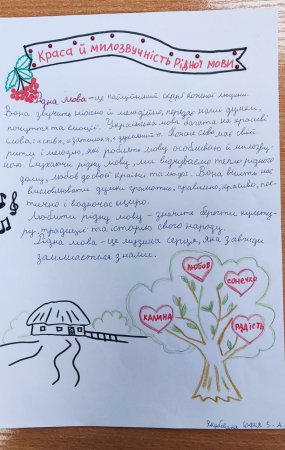 Краса й милозвучність Рідної мови
Рідна мова – це найцінніший скарб кожної людини.
Вона звучить ніжно й мелодійно, передає наші думки,
почуття та емоції. Українська мова багата на красиві
слова: , «затишок», . Кожне слово має свій
ритм і мелодію, які роблять мову особливою й милозву-
чною. Слухаючи рідну мову, ми відчуваємо тепло рідного
дому, любов до своєї країни та людей. Вона вчить нас
висловлювати думки грамотно, правильно, красиво, пое-
тично і водночас щиро.
Любити рідну мову – значить берегти культу-
ру, традиції та історію свого народу.
Рідна мова – це музика серця, яка завжди
залишається з нами.
любов
сонечко
калина
радість
Софія 5-А